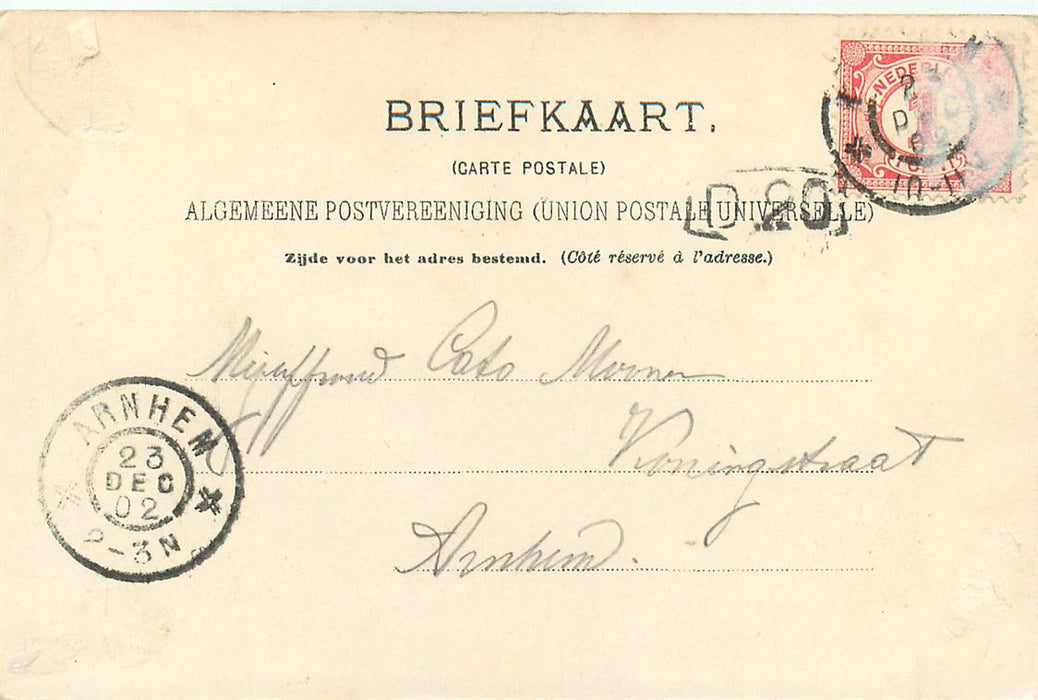 BRIEFKAART.
(CARTE POSTALE)
ALGEMEENE POSTVEREENIGING (UNION POSTALE UNIVERSELLE)
Zijde voor het adres bestemd. (Côté réservé à l'adresse.)
D 20
10-11
Cato
Koningstraat
Arnhem.
ARNHEM
23
DEC
02
2-3N